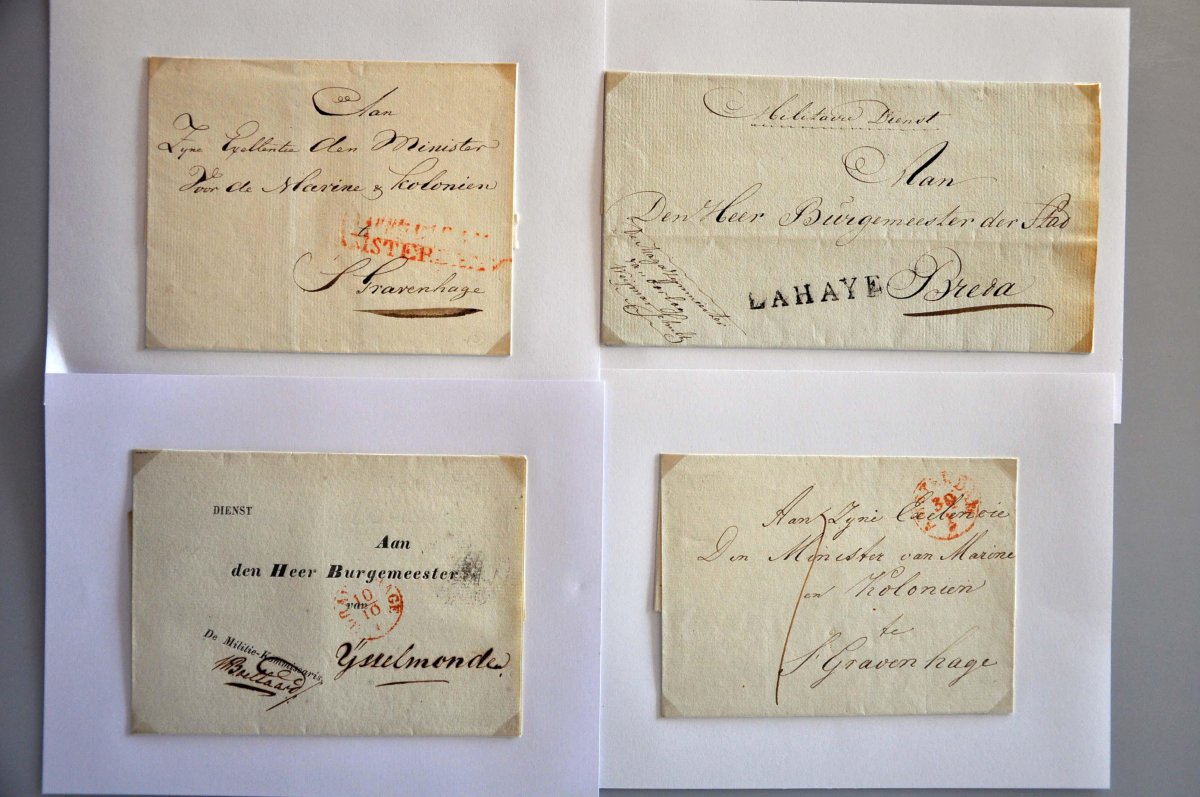 Aan
Zyne Exellentie den Minister
Voor de Marine & Kolonien
AMSTERDAM
S Gravenhage
Militaire Dienst
Aan
Den Heer Burgemeester der Stad
LAHAYE Breda
DIENST
Aan
den Heer Burgemeester
van
10
10
De Militie-Kommissaris,
Ysselmonde.
30
Aan Zyne Excelencie
Den Minister van Marine
en Kolonien
te
S Gravenhage